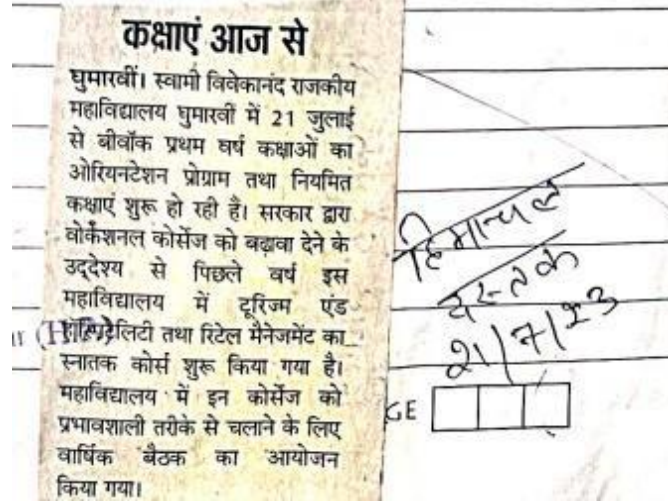 कक्षाएं आज से
घुमारवीं। स्वामी विवेकानंद राजकीय
महाविद्यालय घुमारवीं में 21 जुलाई
से बीवॉक प्रथम वर्ष कक्षाओं का
ओरियनटेशन प्रोग्राम तथा नियमित
कक्षाएं शुरू हो रही है। सरकार द्वारा
वोकेशनल कोर्सेज को बढ़ावा देने के
उद्देश्य से पिछले वर्ष इस
महाविद्यालय में टूरिज्म एंड
हॉस्पिटेलिटी तथा रिटेल मैनेजमेंट का
स्नातक कोर्स शुरू किया गया है।
महाविद्यालय में इन कोर्सेज को
प्रभावशाली तरीके से चलाने के लिए
वार्षिक बैठक का आयोजन
किया गया।
हिमाचल
दस्तक
21/7/23
GE